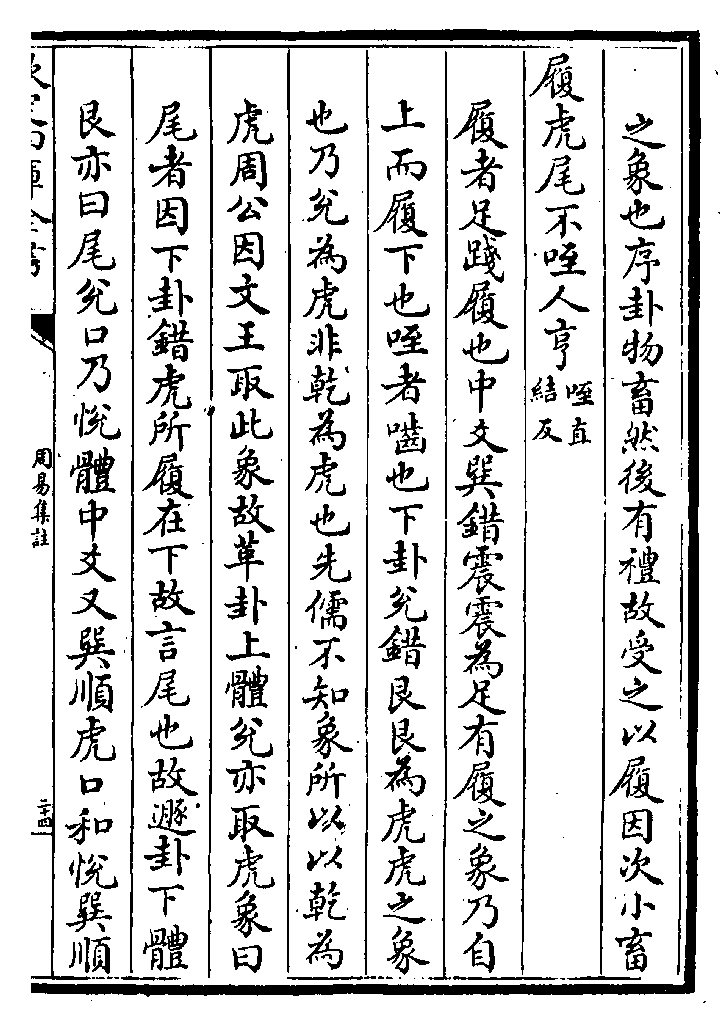 之象也序卦物畜然後有禮故受之以履因次小畜
履虎尾不咥人亨咥直結反
履者足踐履也中爻巽錯震震為足有履之象乃自
上而履下也咥者嚙也下卦兌錯艮艮為虎虎之象
也乃兌為虎非乾為虎也先儒不知象所以以乾為
虎周公因文王取此象故革卦上體兌亦取虎象曰
尾者因下卦錯虎所履在下故言尾也故遯卦下體
艮亦曰尾兌口乃悅體中爻又巽順虎口和悅巽順
欽定四庫全書
周易集註
二十四